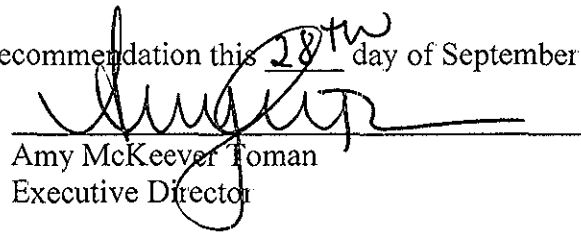 ecommendation this 28TH day of September
Amy McKeever Toman
Executive Director